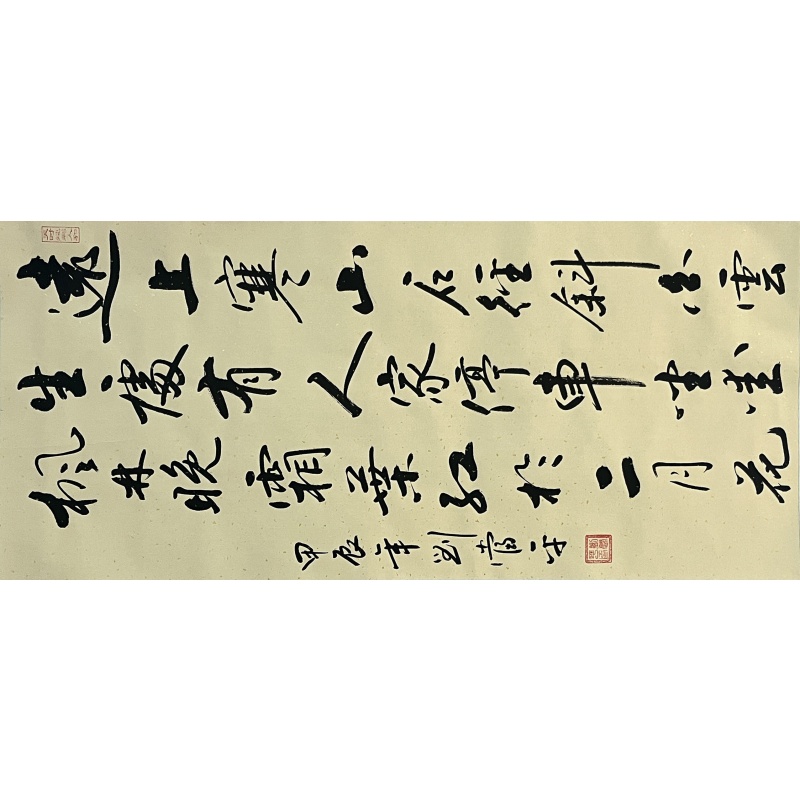 遠上寒山石徑斜白雲
生處有人家停車坐愛
楓林晚霜葉紅於二月花
甲辰年劉